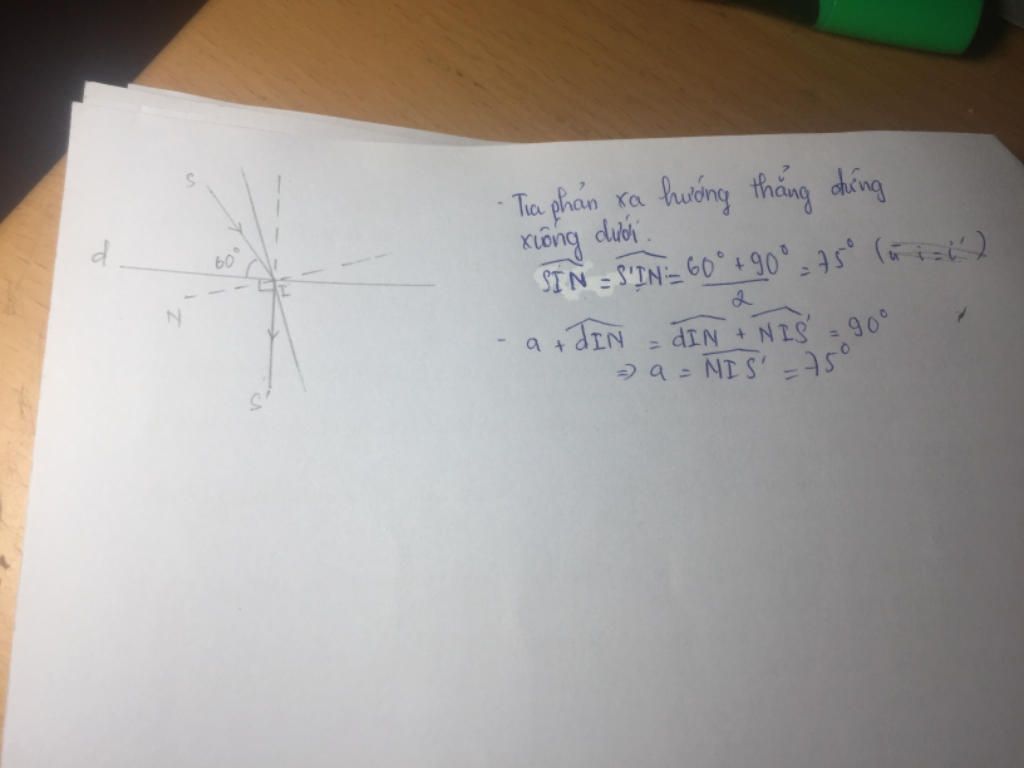 S
d
60°
I
N
S'
- Tia phản xạ hướng thẳng đứng
xuống dưới.
SIN = S'IN = 60° + 90° = 75° (vì i = i')
2
- a + dIN = dIN + NIS' = 90°
⇒ a = NIS' = 75°